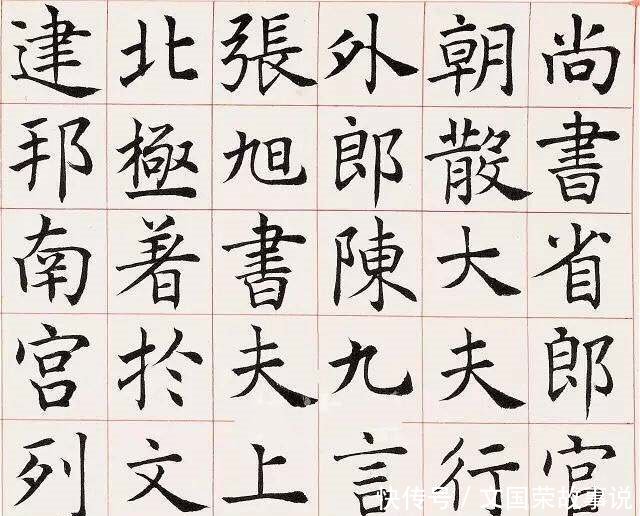 尚書省郎官
朝散大夫行
外郎陳九言
張旭書夫上
北極著於文
建邦南宫列
快传号 / 文国荣故事说